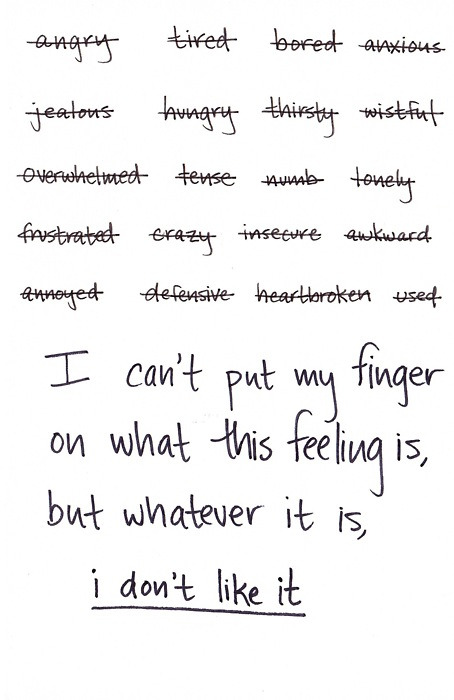 angry tired bored anxious
jealous hungry thirsty wistful
overwhelmed tense numb lonely
frustrated crazy insecure awkward
annoyed defensive heartbroken used
I can't put my finger
on what this feeling is,
but whatever it is,
i don't like it